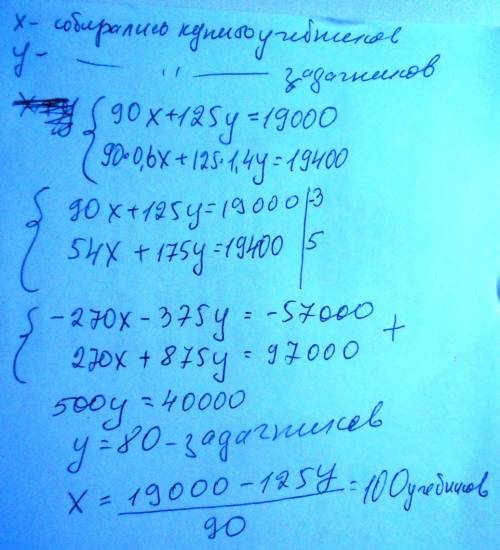 x - собирались купить учебников
y - — " — задачников
90x+125y=19000
90·0,6x+125·1,4y=19400
90x+125y=19000 | -3
54x+175y=19400 | 5
-270x-375y=-57000
270x+875y=97000 +
500y=40000
y=80-задачников
x = (19000-125y)/90 = 100 учебников